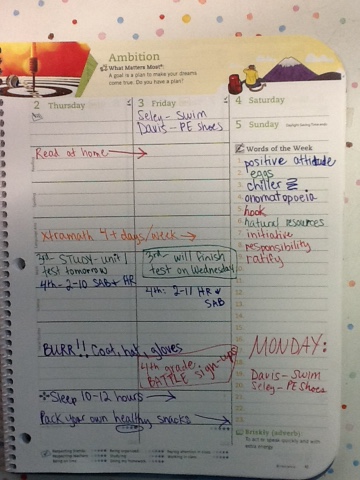 Ambition
What Matters Most:
A goal is a plan to make your dreams
come true. Do you have a plan?
2 Thursday
3 Friday
Seley - Swim
Davis - PE Shoes
Read at home
xtramath 4+ days/week
3rd - STUDY - unit 1
test tomorrow
4th - 2-10 SAB + HR
3rd - will finish
test on Wednesday
4th: 2-11 HR +
SAB
BURR!! Coat, hat, gloves
4th grade
BATTLE sign-ups!
Sleep 10-12 hours
Pack your own healthy snacks
4 Saturday
5 Sunday
Daylight Saving Time ends
Words of the Week
1. positive attitude
2. eggs
3. chiller
4. onomatopoeia
5. hook
6. natural resources
7. initiative
8. responsibility
9. ratify
MONDAY:
Davis - SWIM
Seley - PE Shoes
Briskly (adverb):
To act or speak quickly and with
extra energy.